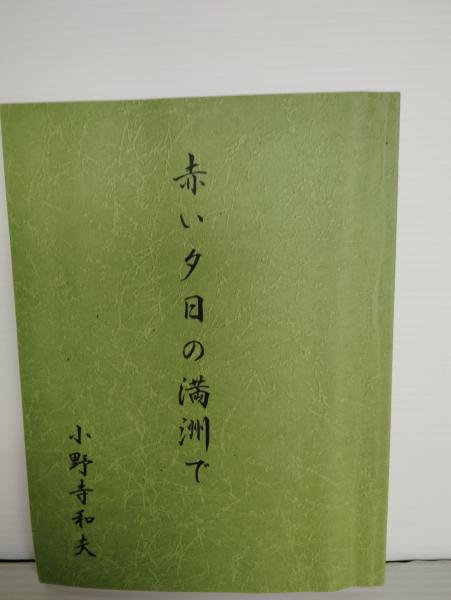 赤い夕日の満洲で
小野寺和夫